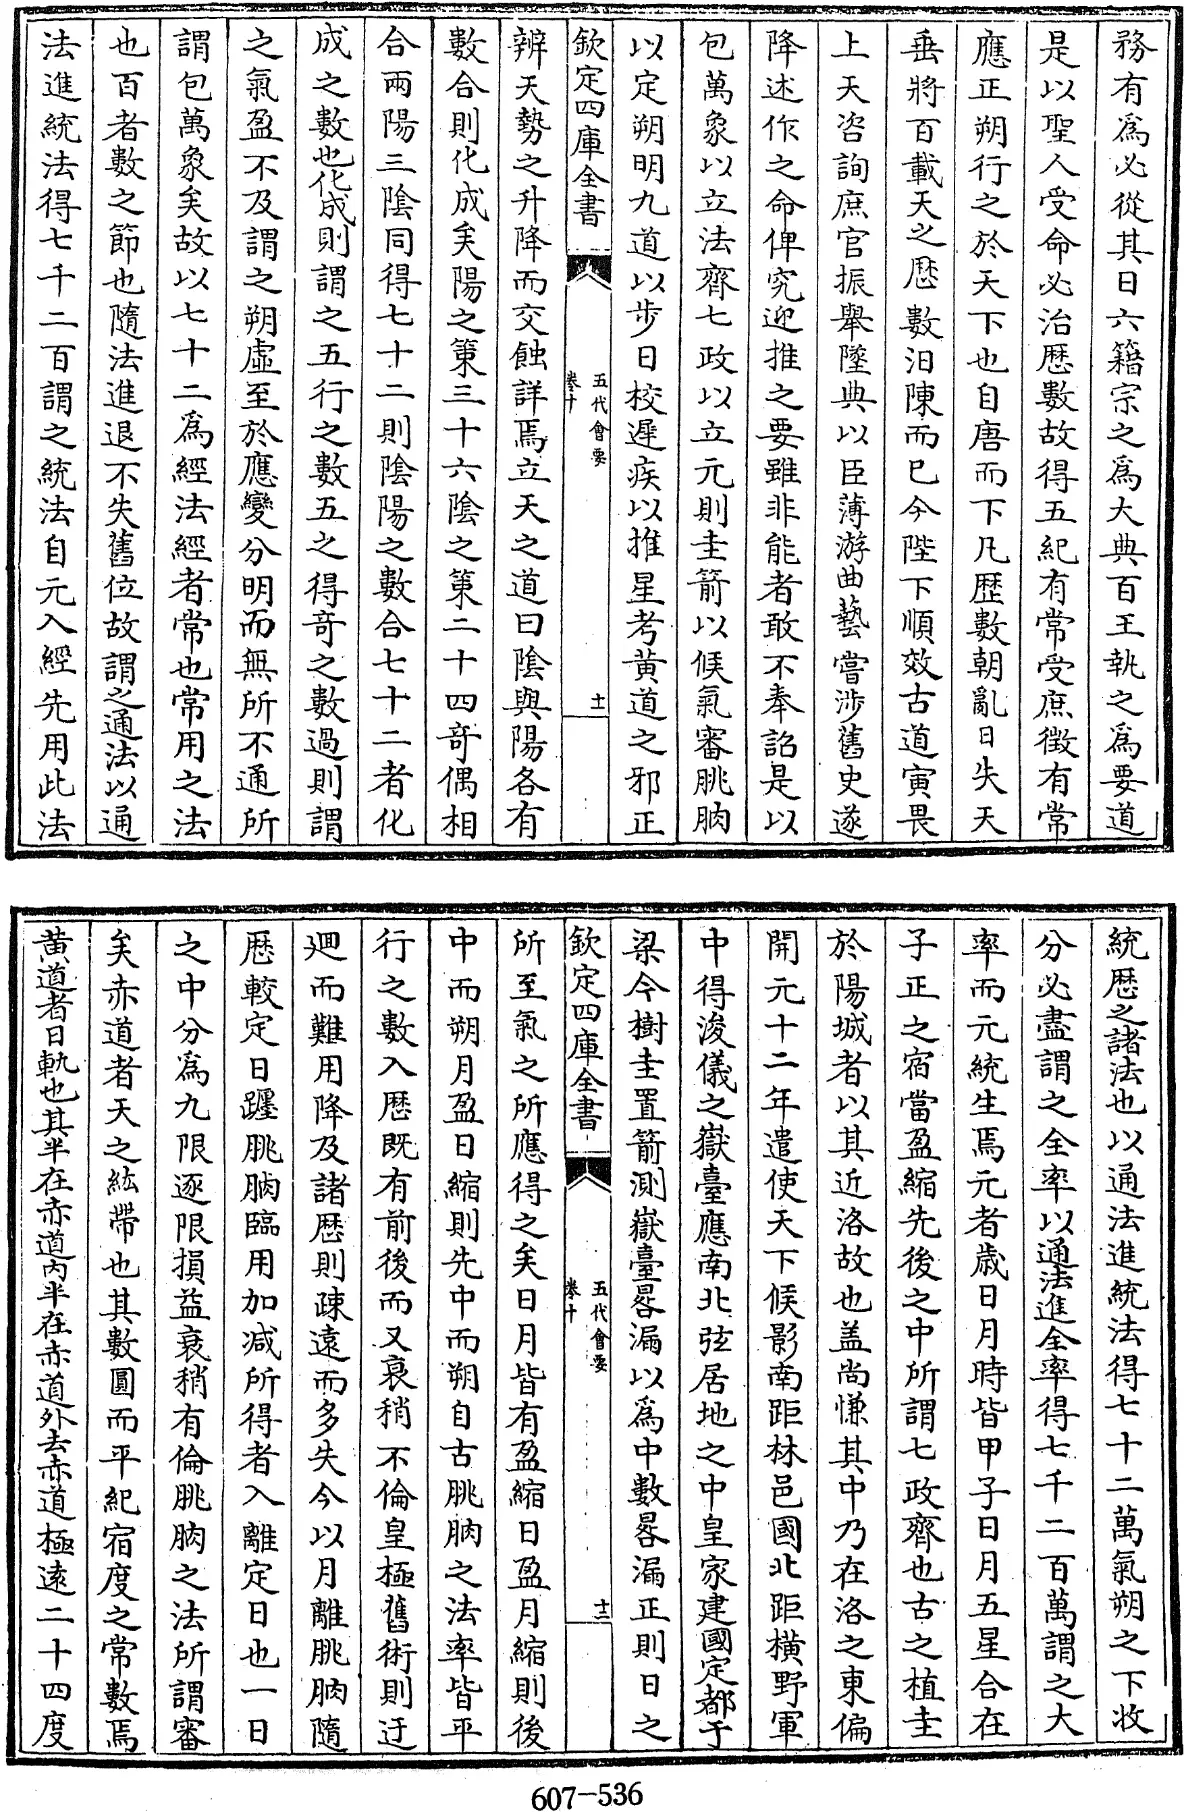 務有爲必從其日六籍宗之爲大典百王執之爲要道
是以聖人受命必治歷數故得五紀有常受庶徵有常
應正朔行之於天下也自唐而下凡歷數朝亂日失天
垂將百載天之歷數汨陳而已今陛下順效古道寅畏
上天咨詢庶官振舉墜典以臣薄游曲藝嘗涉舊史遂
降述作之命俾究迎推之要雖非能者敢不奉詔是以
包萬象以立法齊七政以立元則圭箭以候氣審朓朒
以定朔明九道以步日校遲疾以推星考黄道之邪正
欽定四庫全書
五代會要
卷十
十一
辨天勢之升降而交蝕詳焉立天之道曰陰與陽各有
數合則化成矣陽之策三十六陰之策二十四奇偶相
合兩陽三陰同得七十二則陰陽之數合七十二者化
成之數也化成則謂之五行之數五之得竒之數過則謂
之氣盈不及謂之朔虛至於應變分明而無所不通所
謂包萬象矣故以七十二爲經法經者常也常用之法
也百者數之節也隨法進退不失舊位故謂之通法以通
法進統法得七千二百謂之統法自元入經先用此法
統歷之諸法也以通法進統法得七十二萬氣朔之下收
分必盡謂之全率以通法進全率得七千二百萬謂之大
率而元統生焉元者歲日月時皆甲子日月五星合在
子正之宿當盈縮先後之中所謂七政齊也古之植圭
於陽城者以其近洛故也盖尚慊其中乃在洛之東偏
開元十二年遣使天下候影南距林邑國北距横野軍
中得浚儀之嶽臺應南北弦居地之中皇家建國定都于
梁今樹圭置箭測嶽臺晷漏以爲中數晷漏正則日之
欽定四庫全書
五代會要
卷十
十二
所至氣之所應得之矣日月皆有盈縮日盈月縮則後
中而朔月盈日縮則先中而朔自古朓朒之法率皆平
行之數入歷既有前後而又衰稍不倫皇極舊術則迂
迴而難用降及諸歷則疎遠而多失今以月離朓朒隨
歷較定日躔朓朒臨用加减所得者入離定日也一日
之中分爲九限逐限損益衰稍有倫朓朒之法所謂審
矣赤道者天之紘帶也其數圓而平紀宿度之常數焉
黄道者日軌也其半在赤道內半在赤道外去赤道極遠二十四度
607-536